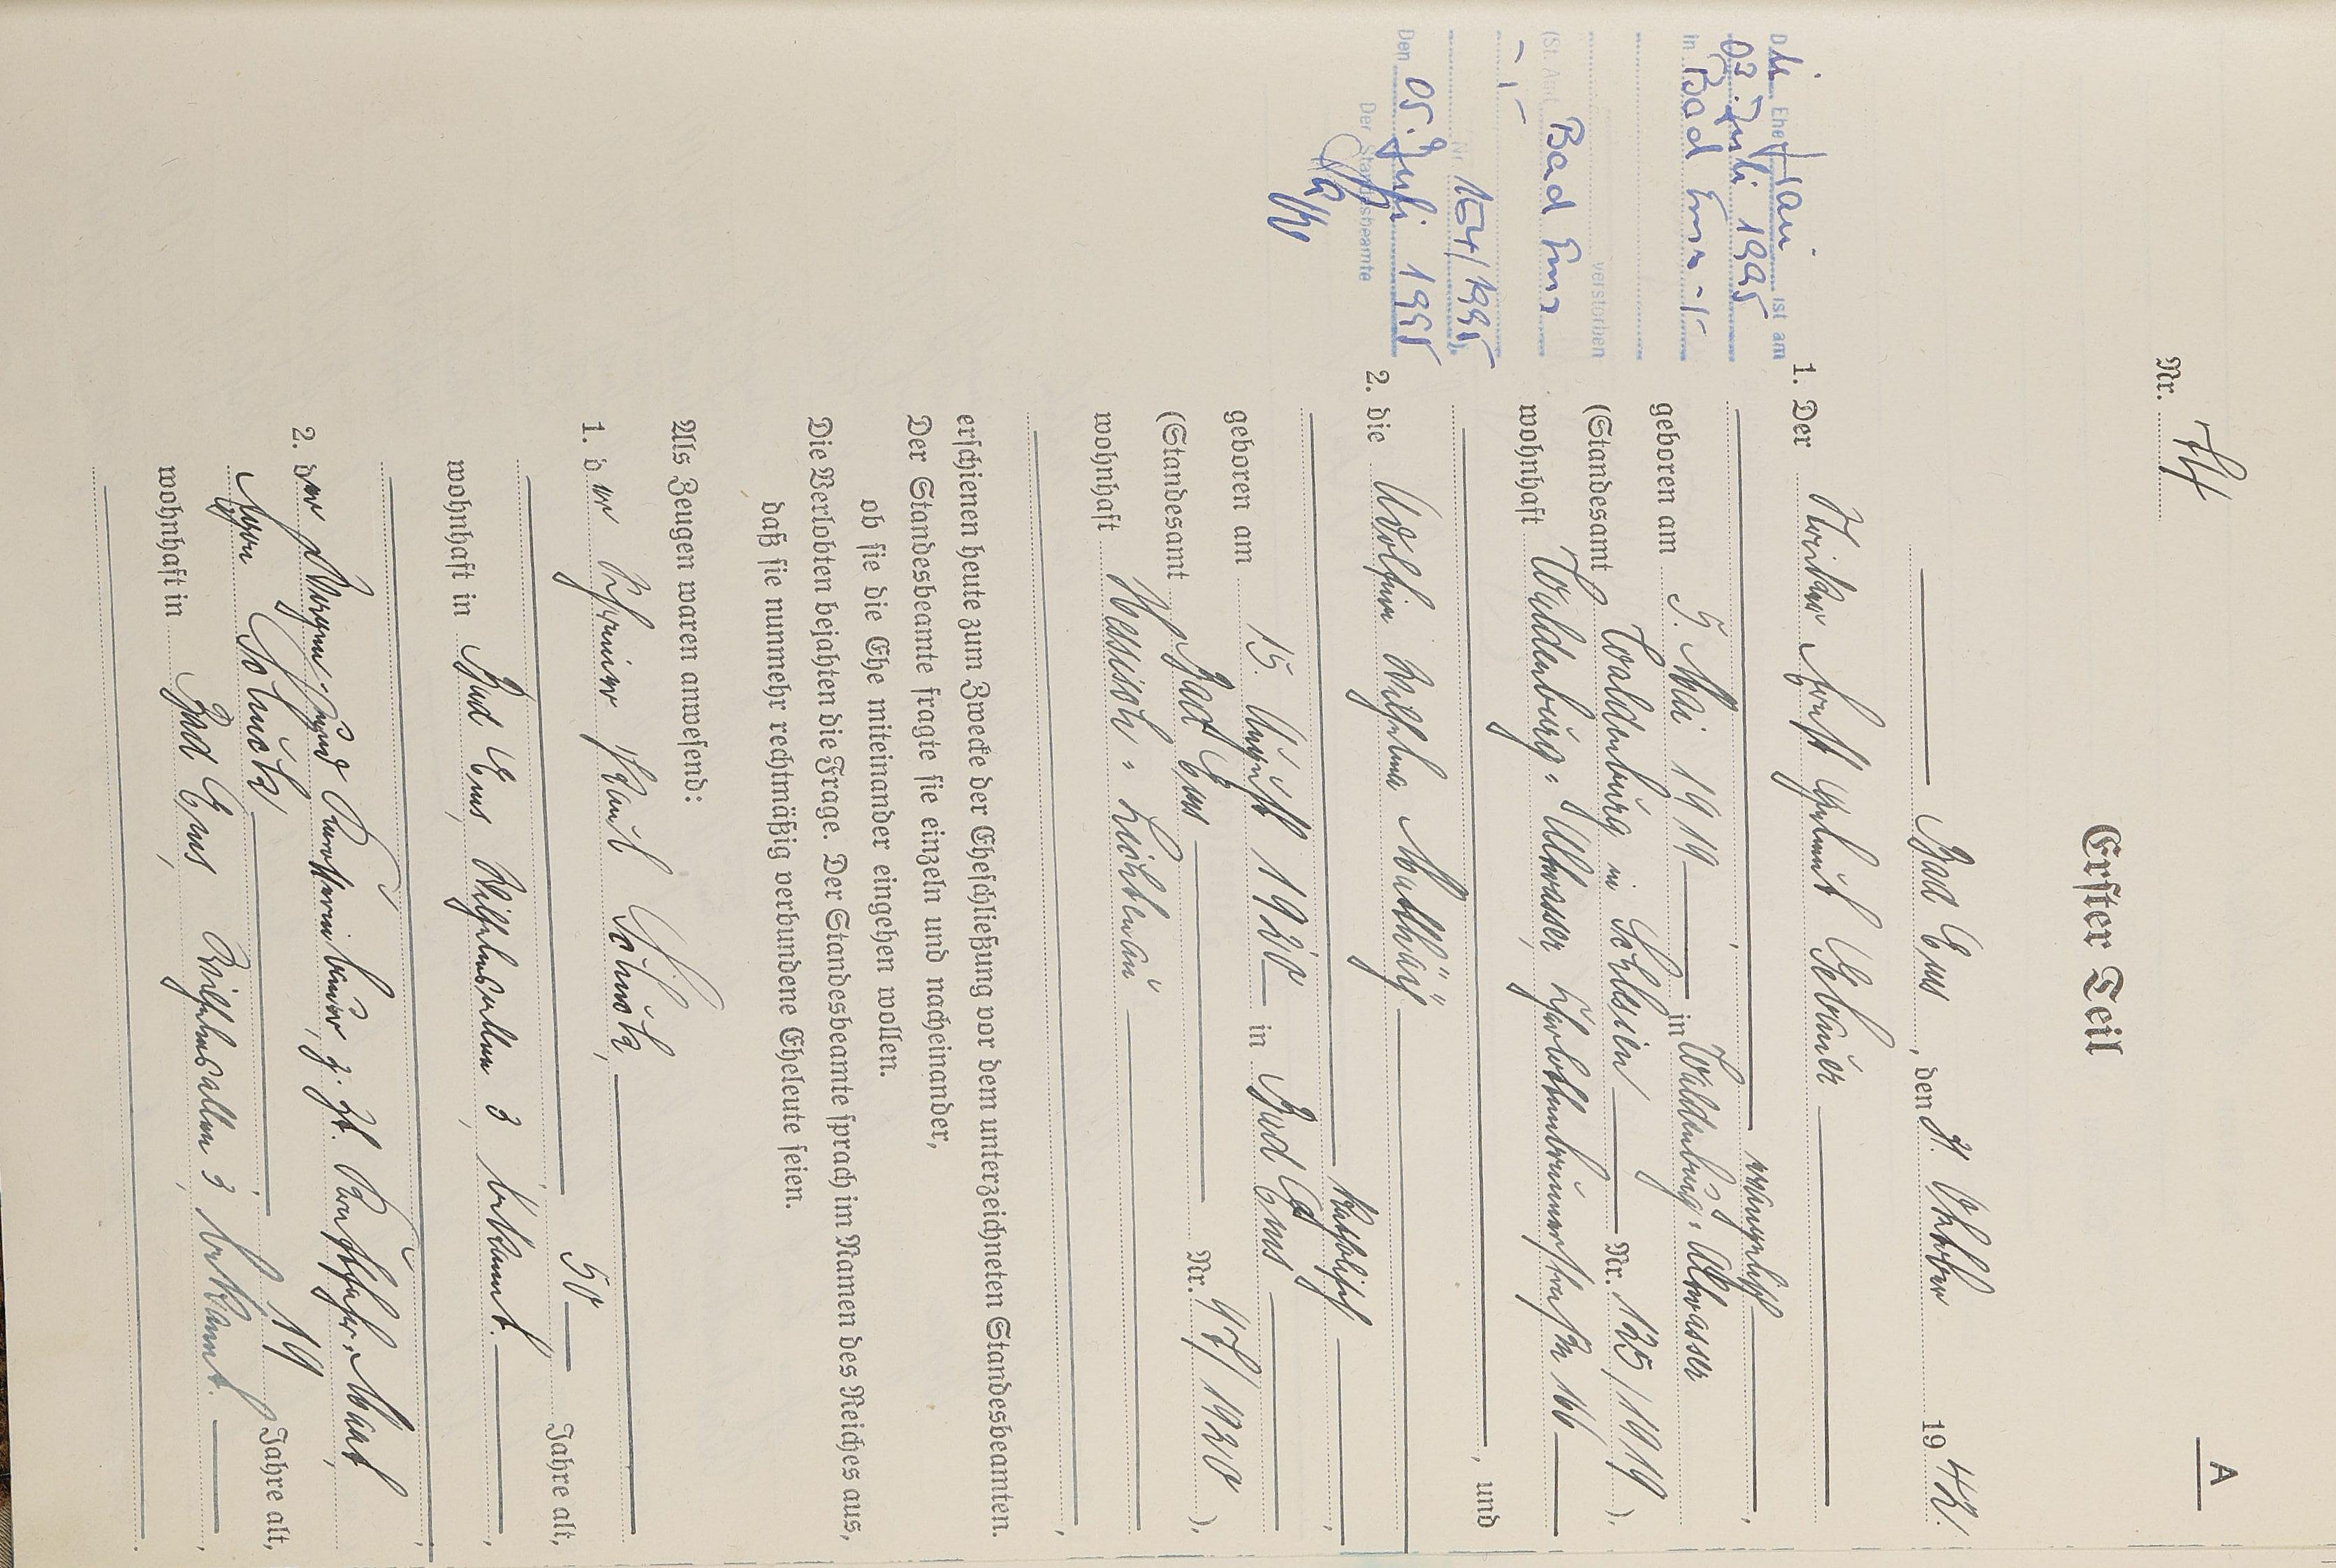 A
Nr.
Erster Teil
Bad Ems, den Oktober 1942.
1. Der Gebauer
evangelisch,
geboren am 5. Mai 1919 in Waldenburg-Altwasser
(Standesamt Waldenburg in Schlesien Nr. 125/1919),
wohnhaft Waldenburg-Altwasser, Charlottenbrunnerstraße 166
, und
2. die Wilhelma
katholisch,
geboren am 15. August 1920 in Bad Ems
(Standesamt Bad Ems Nr. 47/1920),
wohnhaft Hessisch-Lichtenau
,
erschienen heute zum Zwecke der Eheschließung vor dem unterzeichneten Standesbeamten.
Der Standesbeamte fragte sie einzeln und nacheinander,
ob sie die Ehe miteinander eingehen wollen.
Die Verlobten bejahten die Frage. Der Standesbeamte sprach im Namen des Reiches aus,
daß sie nunmehr rechtmäßig verbundene Eheleute seien.
Als Zeugen waren anwesend:
1. der Schreiner Paul Schuck,
50 Jahre alt,
wohnhaft in Bad Ems, Wilhelmsallee 3, bekannt.
2. der z. Zt.
Schuck, 19 Jahre alt,
wohnhaft in Bad Ems, Wilhelmsallee 3, bekannt.
Die Ehefrau ist am
03. Juli 1995
in Bad Ems -/-
verstorben
(St. Amt Bad Ems
-,-
Nr. 164/1995)
Den 05. Juli 1995
Der Standesbeamte